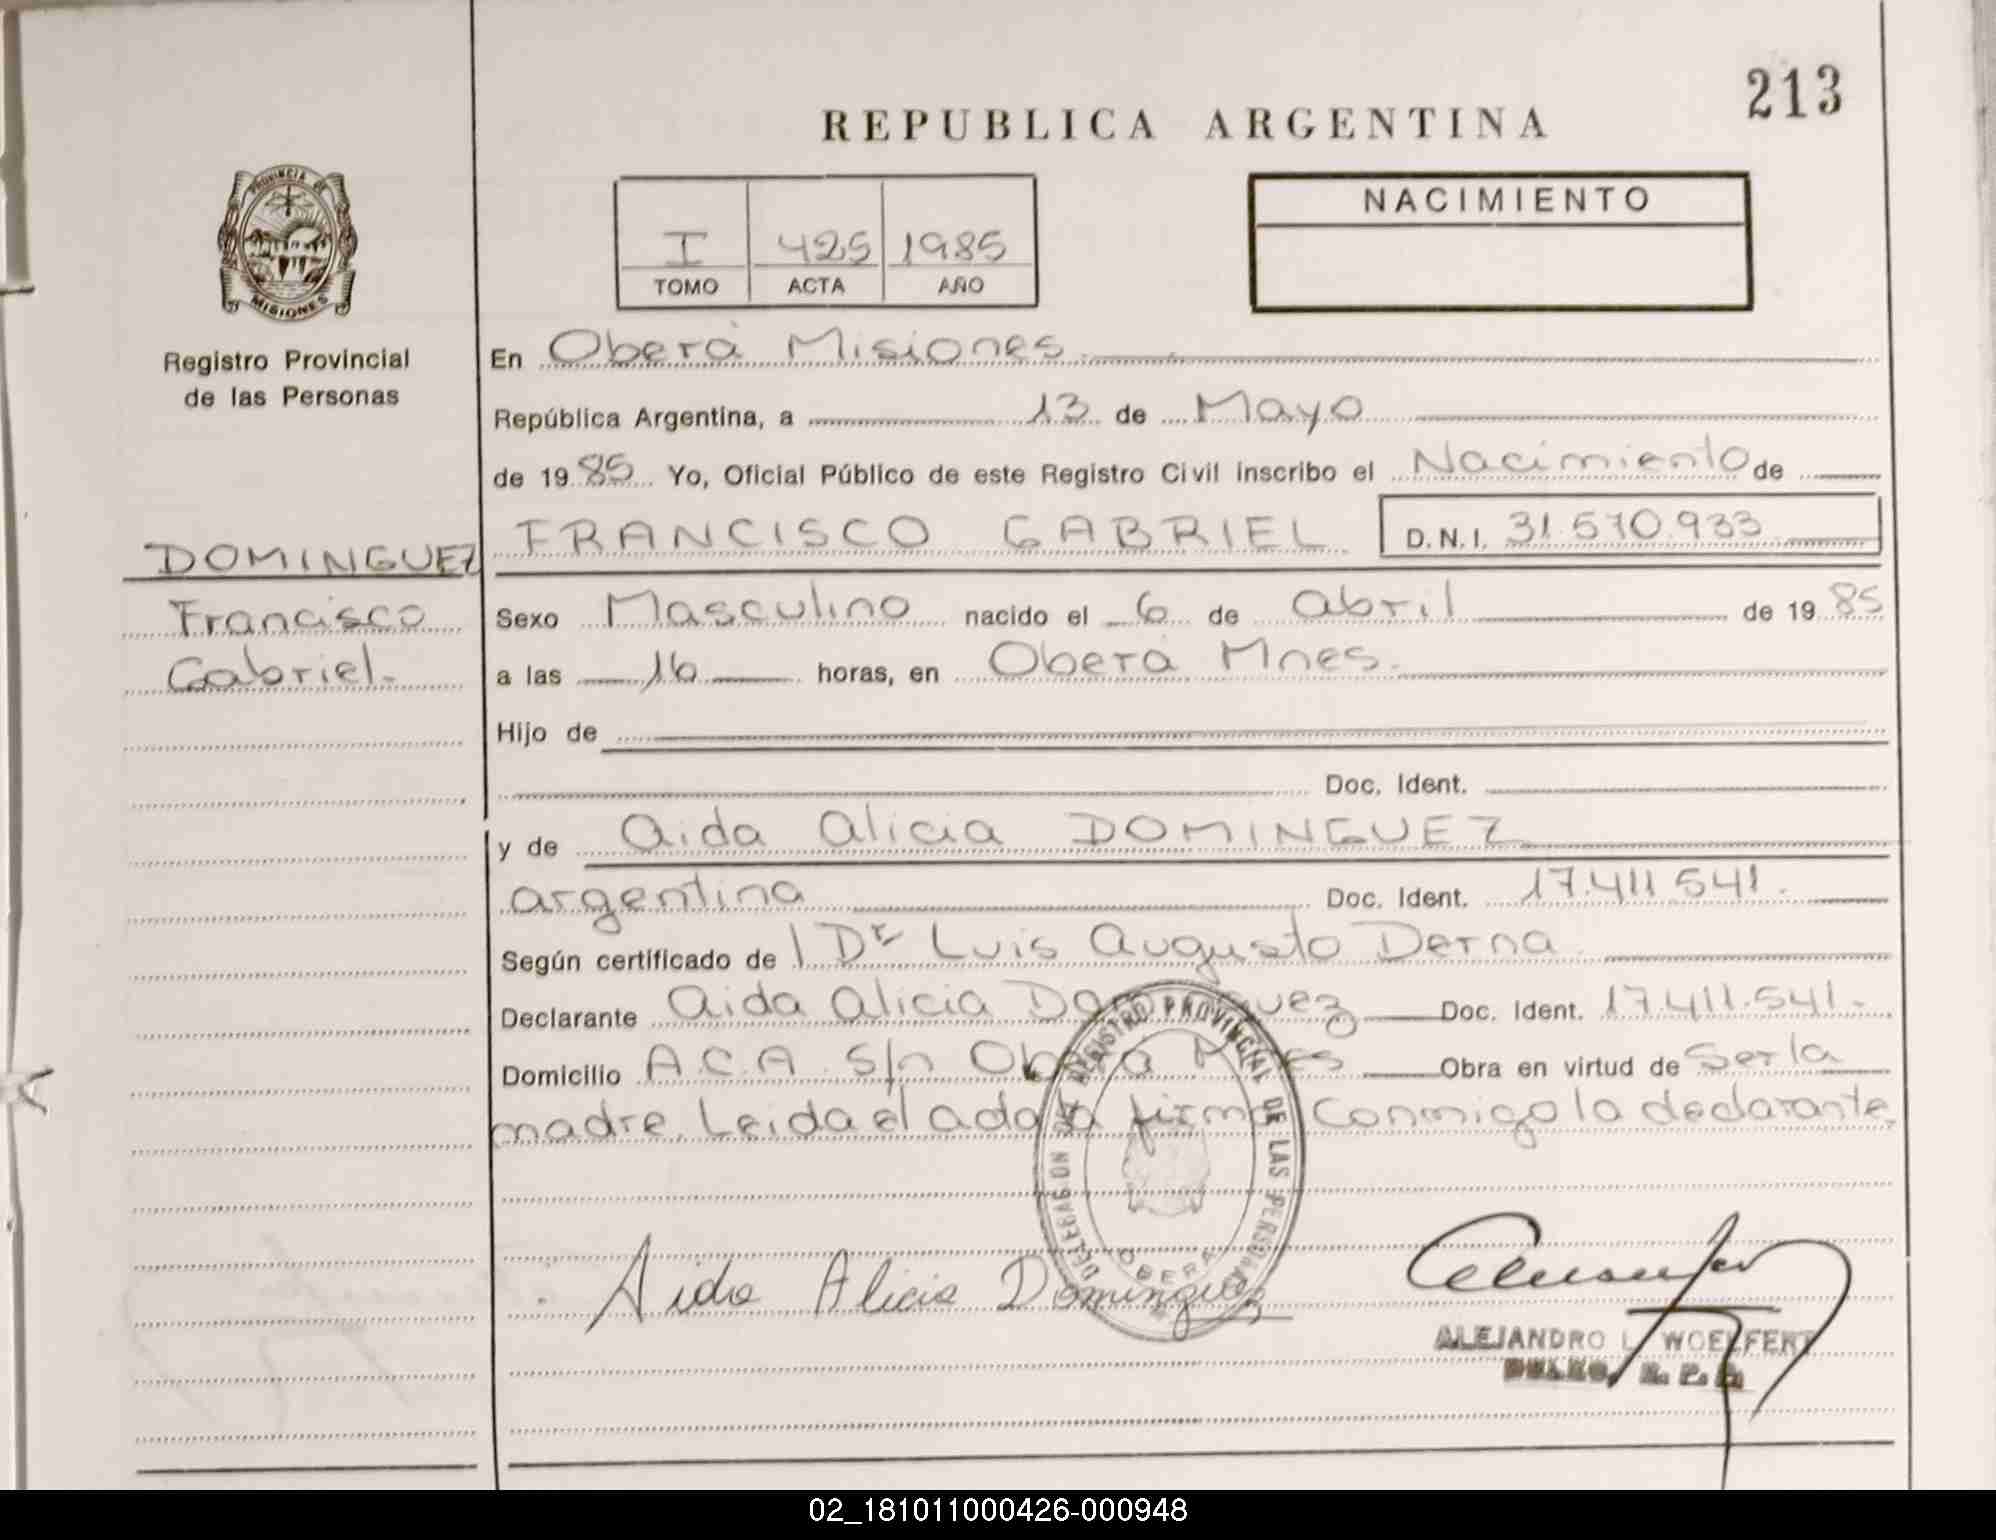 213
REPUBLICA ARGENTINA
PROVINCIA DE
MISIONES
Registro Provincial
de las Personas
I 425 1985
TOMO ACTA AÑO
NACIMIENTO
En Oberá Misiones
República Argentina, a 13 de Mayo
de 1985 Yo, Oficial Público de este Registro Civil inscribo el Nacimiento de
DOMINGUEZ
Francisco
Gabriel.
FRANCISCO GABRIEL D.N.I. 31.570.933
Sexo Masculino nacido el 6 de abril de 1985
a las 16 horas, en Oberá Mnes.
Hijo de
Doc. Ident.
y de Aida Alicia DOMINGUEZ
argentina Doc. Ident. 17.411.541.
Según certificado de 1 Dr Luis Augusto Derna
Declarante Aida Alicia Dominguez Doc. Ident. 17.411.541.-
Domicilio A.C.A. S/n Oberá Mnes Obra en virtud de Ser la
madre. Leida el acta firma Conmigo la declarante.
DELEGACION DEL REGISTRO PROVINCIAL DE LAS PERSONAS
OBERA
Aida Alicia Dominguez
ALEJANDRO L. WOELFERT
02_181011000426-000948